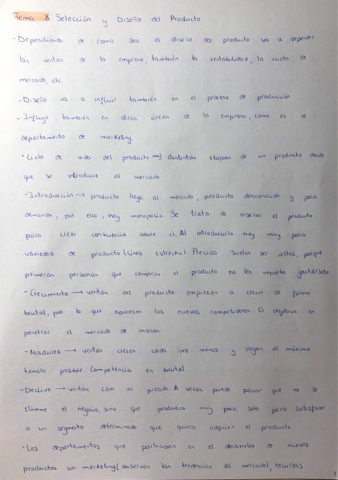 Tema 8: Selección y Diseño del Producto
- Dependiendo de como sea el diseño del producto va a depender
las ventas de la empresa, también la rentabilidad, la cuota de
mercado, etc
- Diseño va a influir también en el proceso de producción
- Influye también en otras áreas de la empresa, como es el
departamento de marketing
* Ciclo de vida del producto → distintas etapas de un producto desde
que se introduce al mercado
- Introducción → producto llega al mercado, producto desconocido y poca
demanda, por ello, hay monopolio. Se trata de enseñar el producto
para crear conciencia sobre él. Al introducirlo hay muy poca
variedad de producto (línea estrecha). Precios suelen ser altos, porque
primeras personas que compran el producto no les importa gastárselo
- Crecimiento → ventas del producto empiezan a crecer de forma
brutal, por lo que aparecen los nuevos competidores. El objetivo es
penetrar el mercado de masas
- Madurez → ventas crecen cada vez menos y llegan al máximo
tamaño posible. Competencia es brutal
- Declive → ventas caen en picado. A veces puede pasar que no se
elimine el negocio, sino que produzca muy poco, solo para satisfacer
a un segmento determinado que quiera adquirir el producto
- Los departamentos que participan en el desarrollo de nuevos
productos son: marketing (observan las tendencias del mercado), recursos